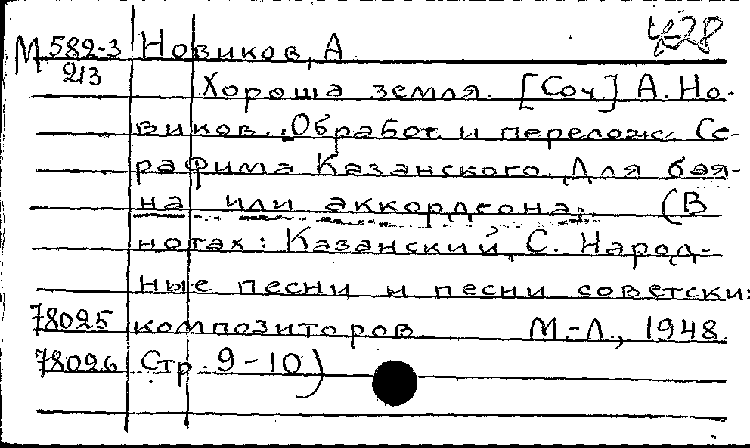 428
М 582-3 Новиков, А.
213 Хороша земля. [Соч] А. Но-
виков. Обработ. и перелож. Се-
рафима Казанского. Для бая-
на или аккордеона. (В
нотах: Казанский, С. Народ-
ные песни и песни советских
78025 композиторов М.-Л., 1948.
78026 Стр. 9-10)